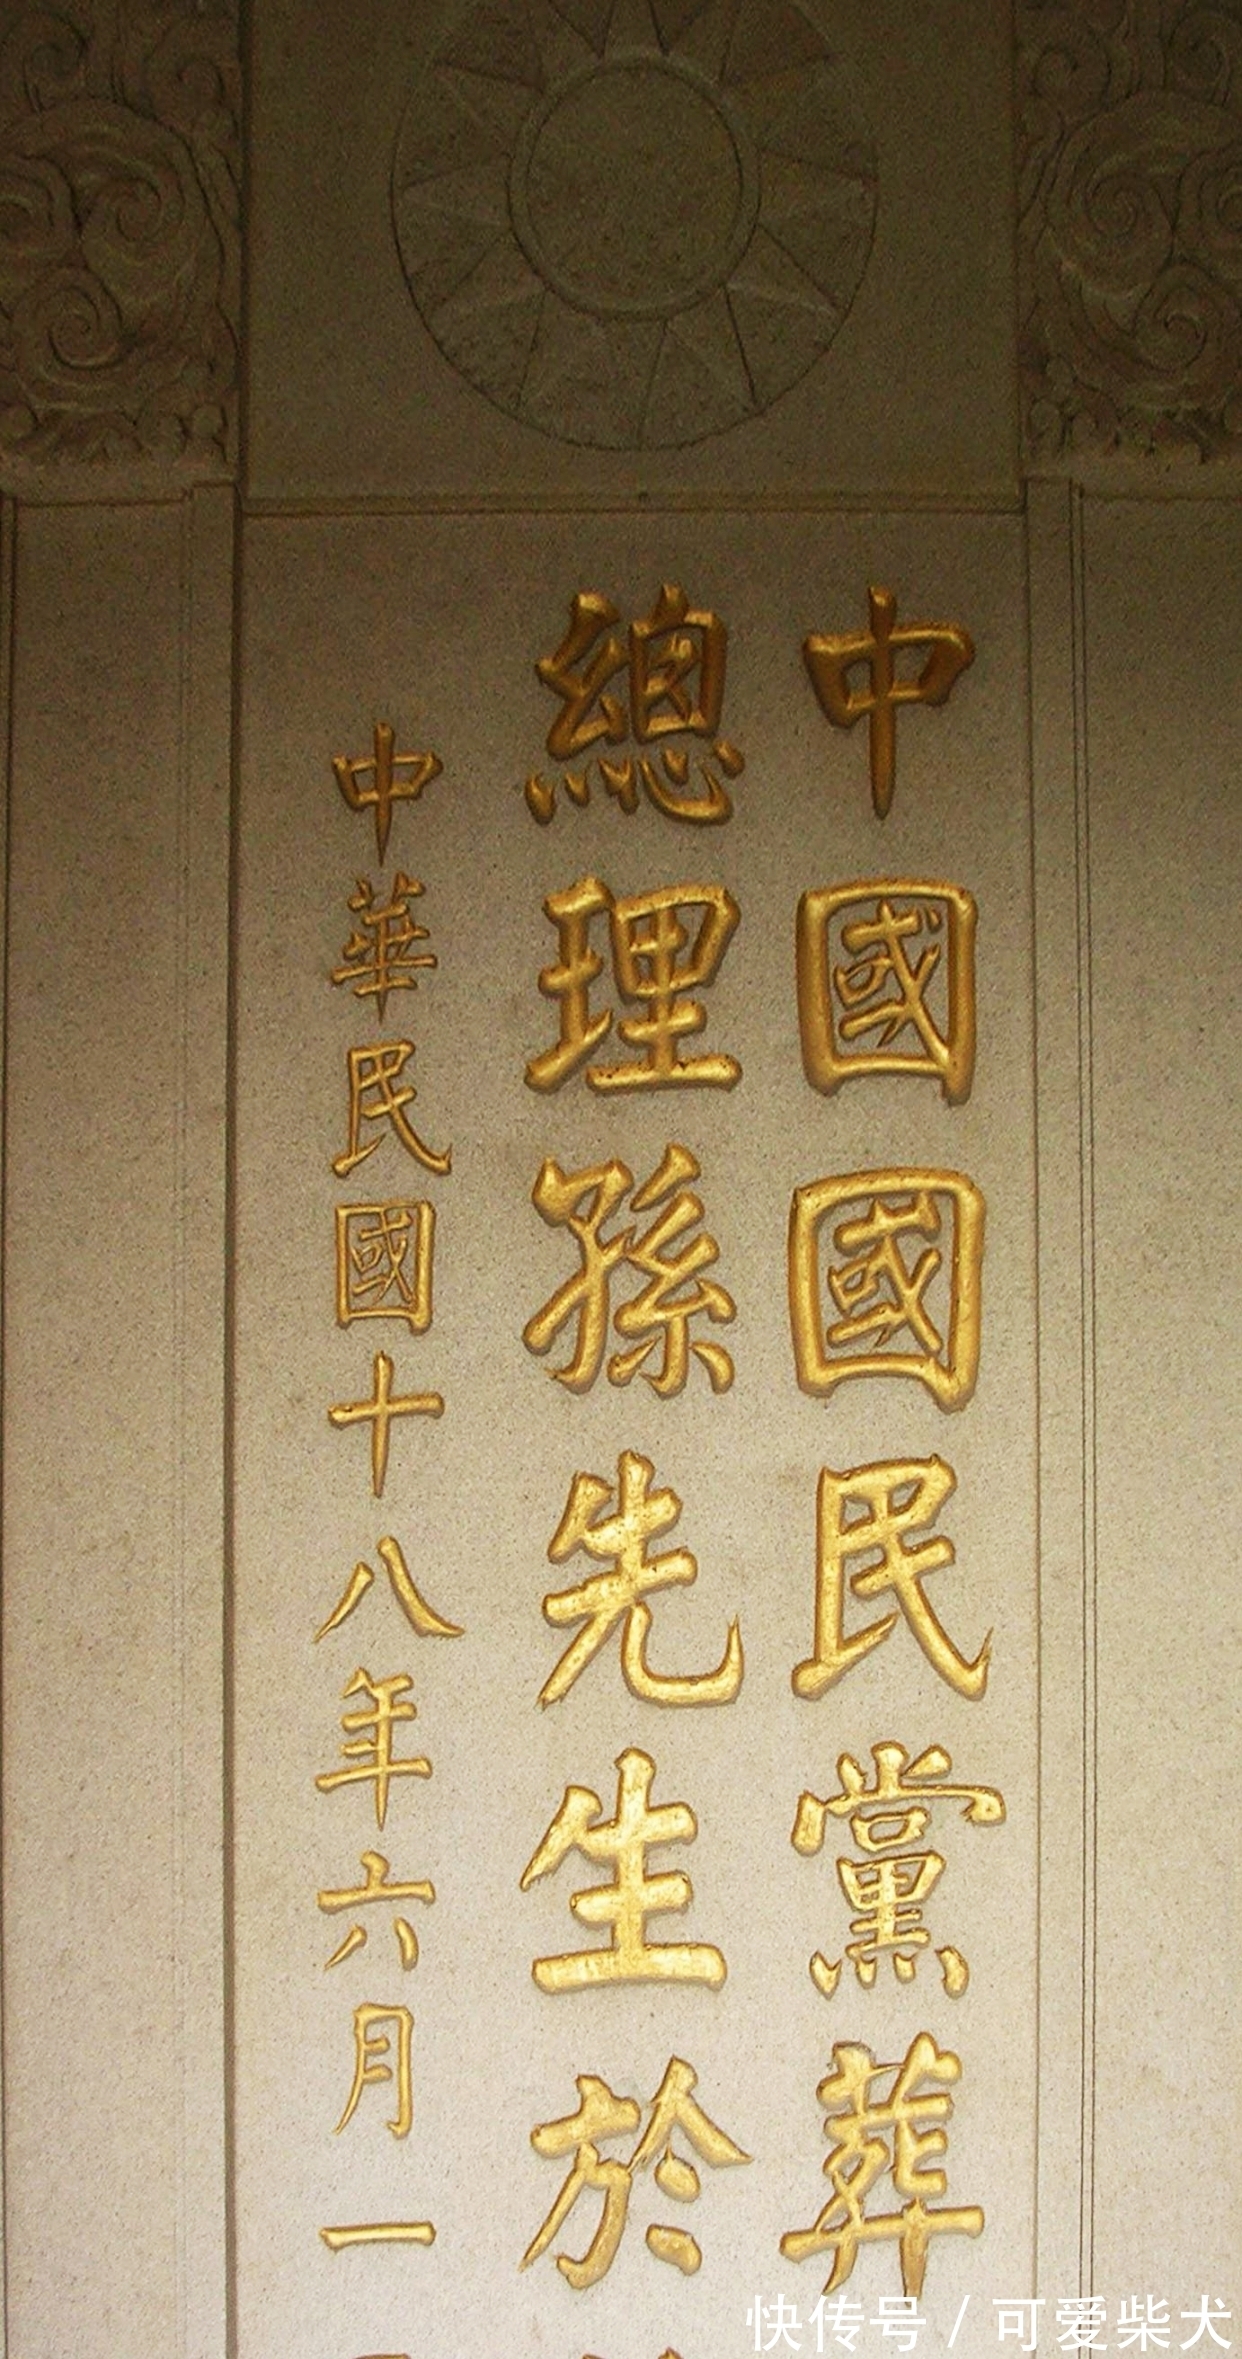 中國國民黨葬
總理孫先生於
中華民國十八年六月一
快传号 / 可爱柴犬